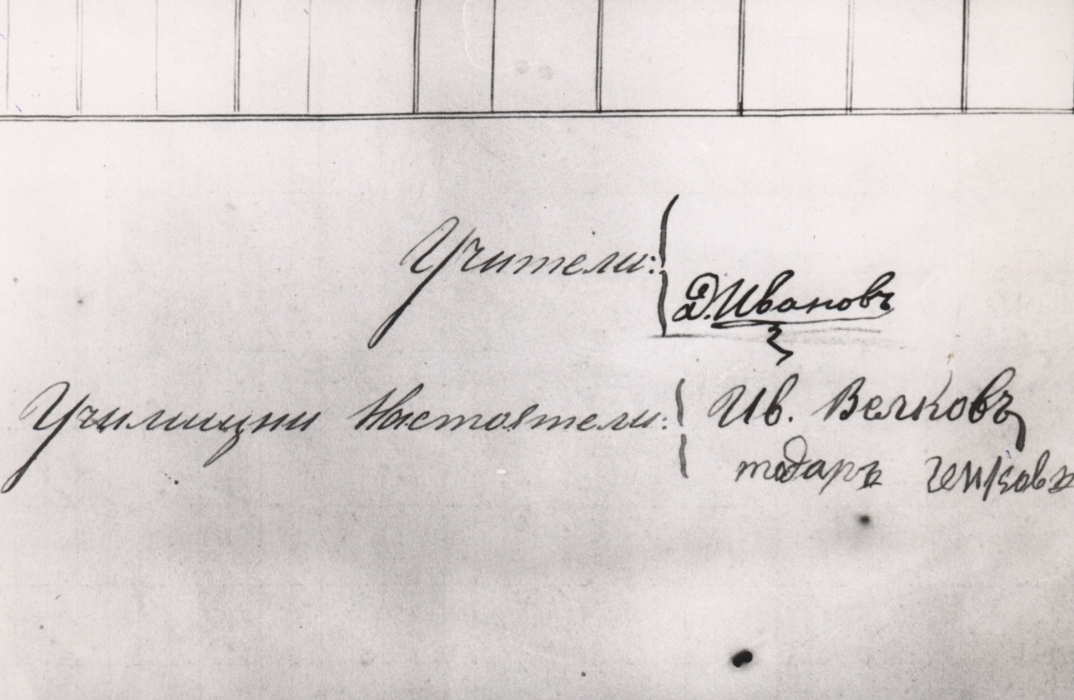 Учители:
Д. Ивановъ
Училищни Настоятели: Ив. Велковъ
тодаръ ченковъ